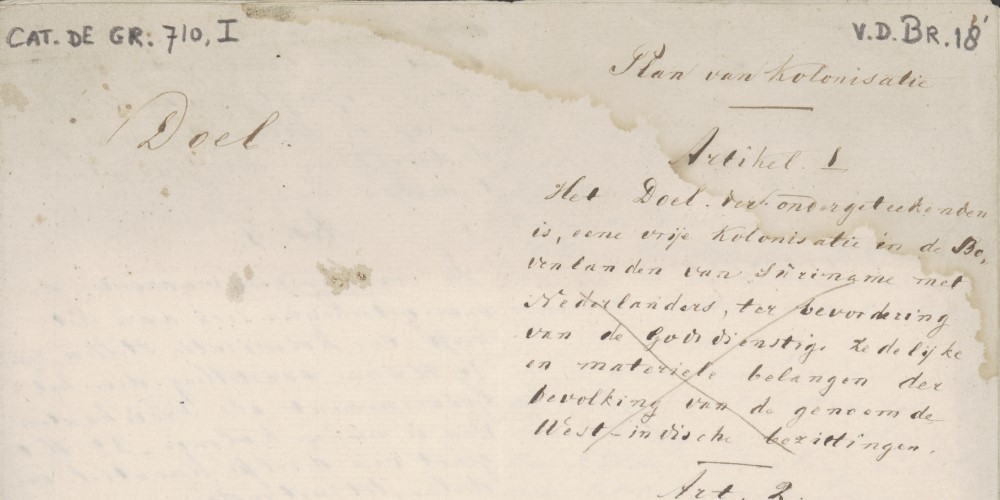 CAT. DE GR. 710, I
V.D. BR. 18
Doel.
Plan van Kolonisatie
Artikel. 1
Het Doel der ondergeteekenden
is, eene vrije Kolonisatie in de Bo,
venlanden van Suriname met
Nederlanders, ter bevordering
van de Godsdienstige Zedelijke
en materiele belangen der
bevolking van de genoemde
West-indische bezittingen.
Art. 2.